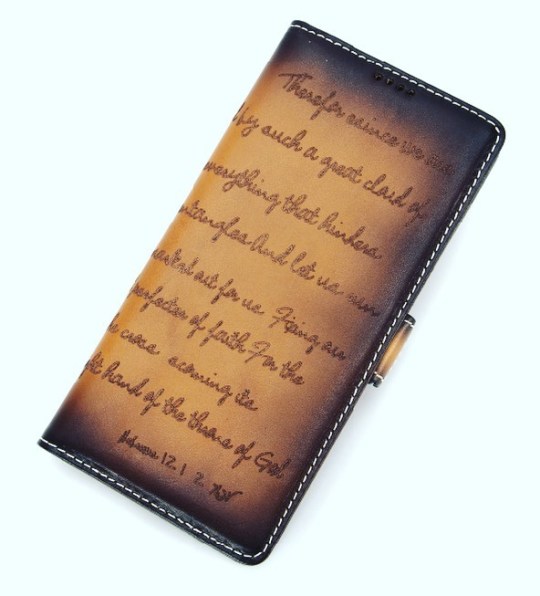 Therefor saince we are
by such a great cloud of
everything that hinders
ntangles And let us run
marked out for us Fixing our
perfecter of faith For the
e cross scorning its
ght hand of the throne of God
Hebrews 12. 1 2. NIV